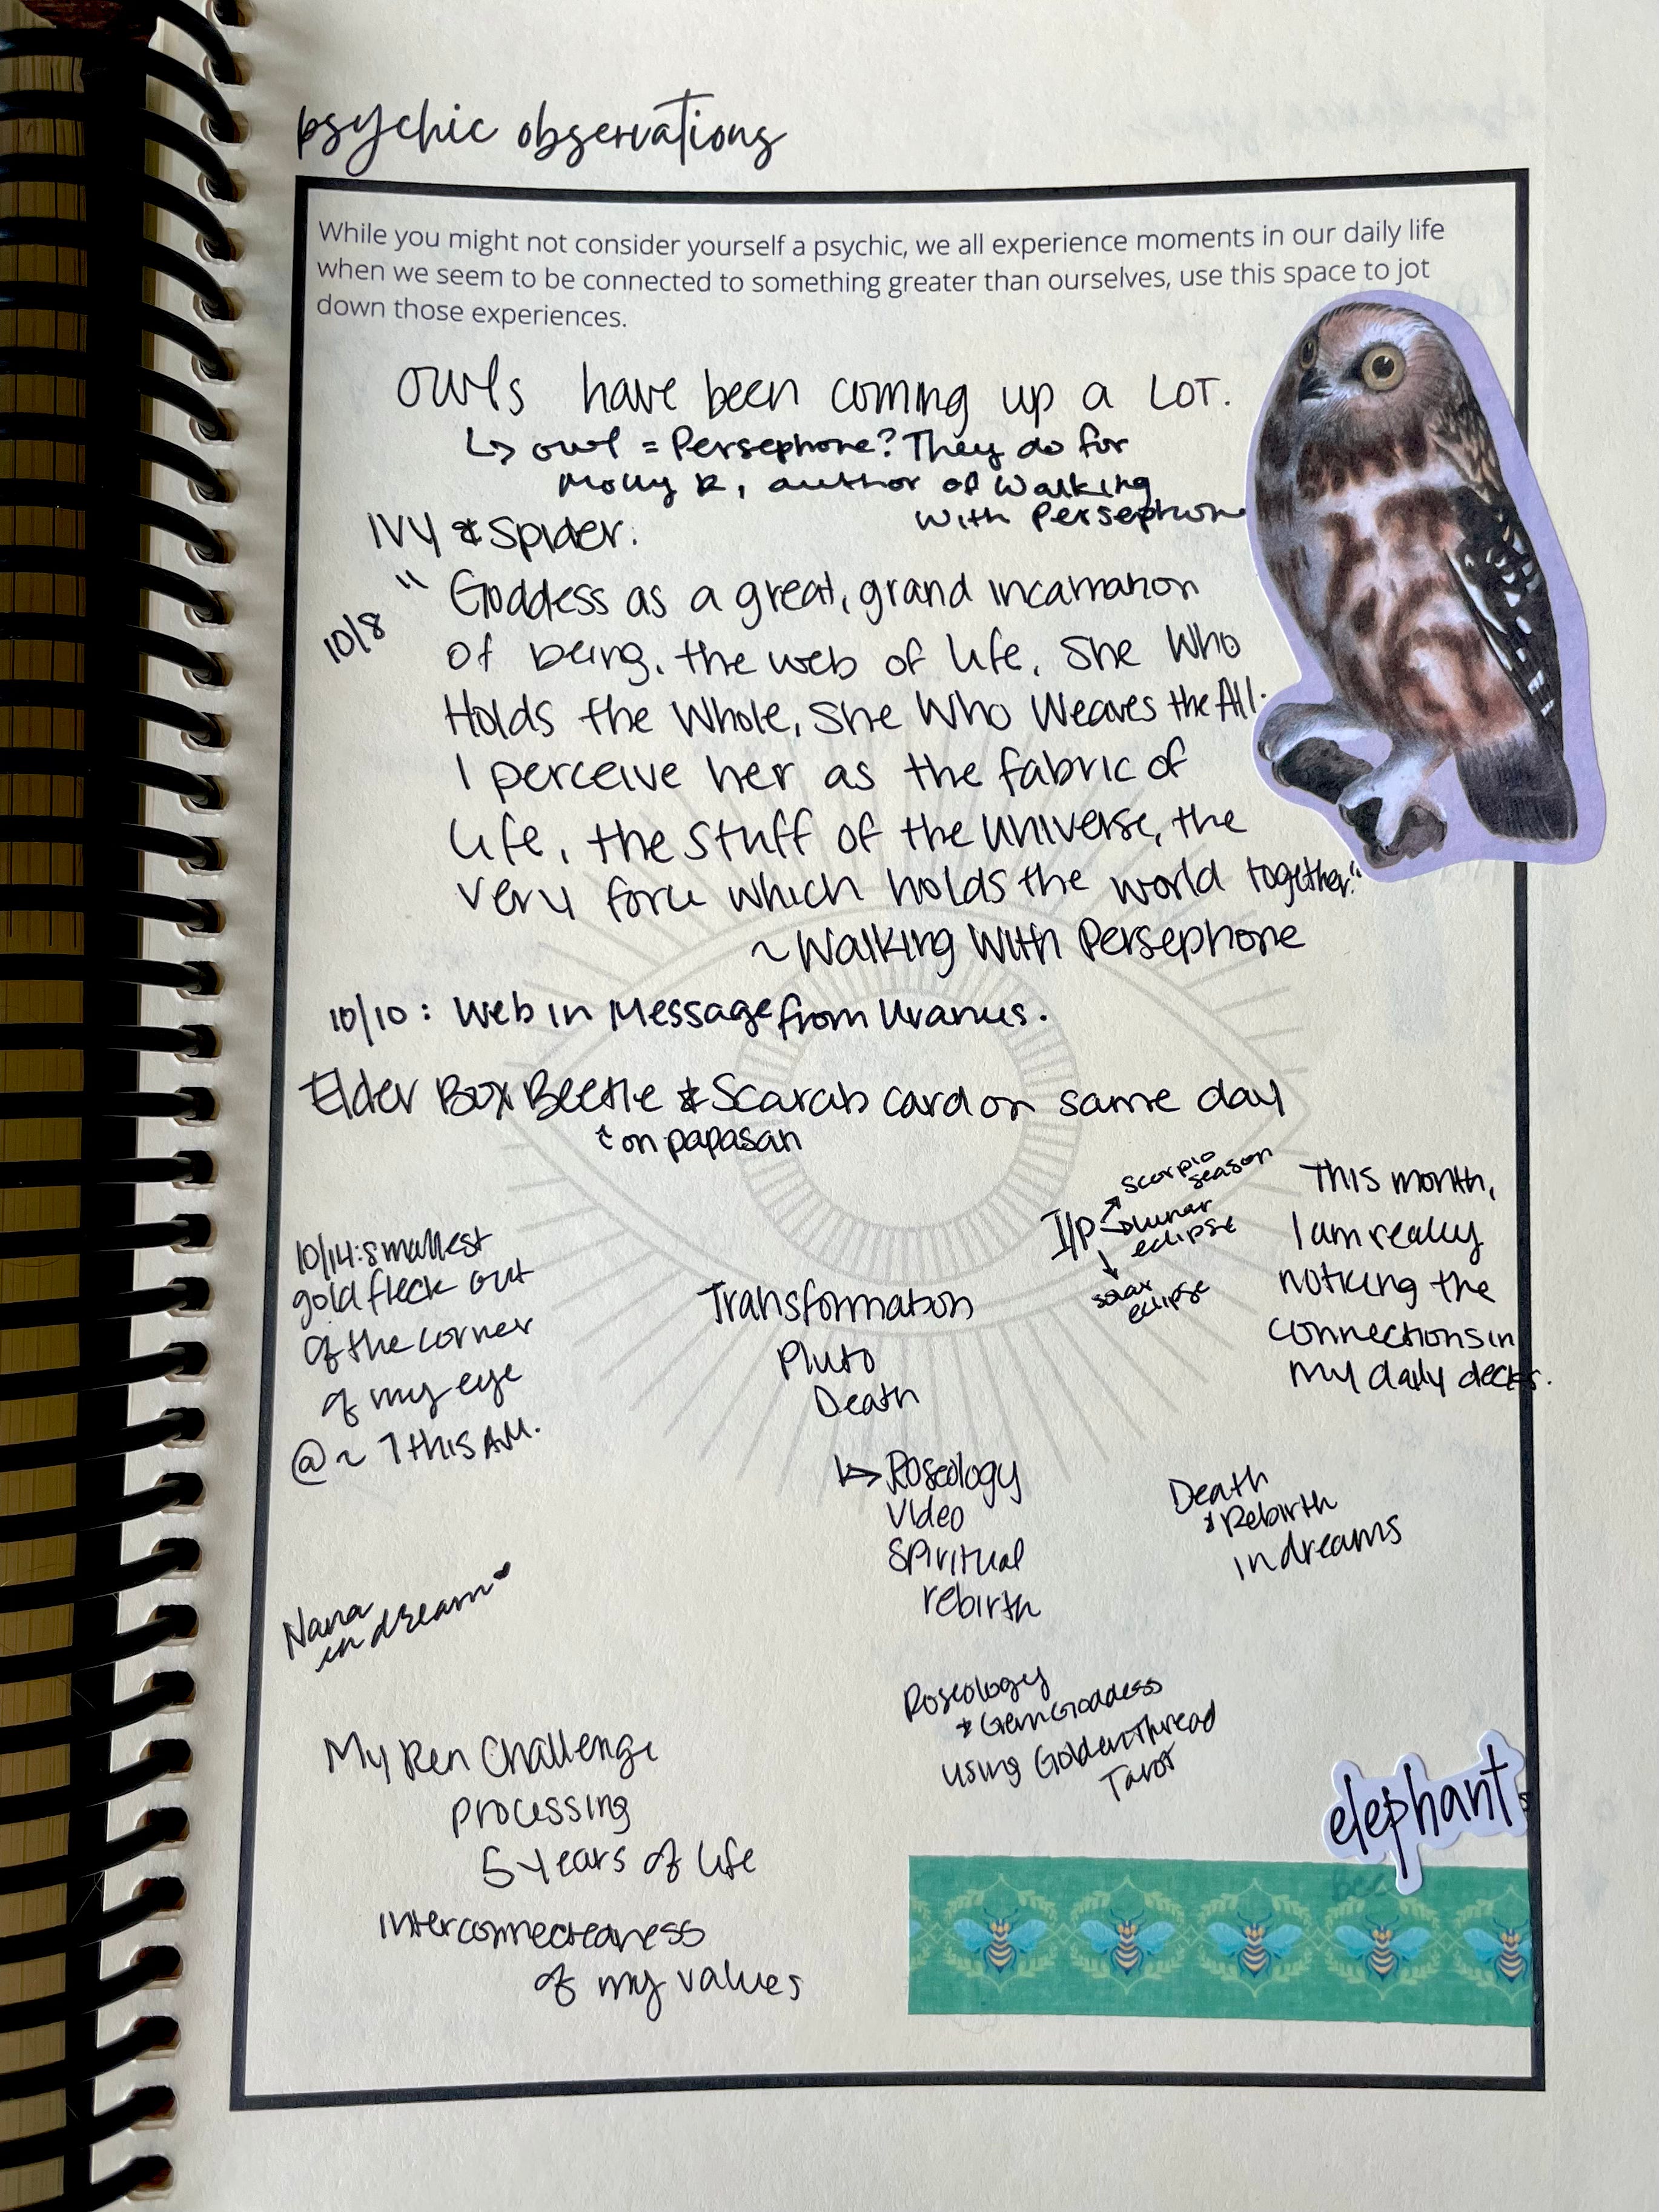 psychic observations
While you might not consider yourself a psychic, we all experience moments in our daily life
when we seem to be connected to something greater than ourselves, use this space to jot
down those experiences.
owls have been coming up a LOT.
↳ owl = Persephone? They do for
Molly R, author of Walking
With Persephone
IVY & Spider:
10/8
" Goddess as a great, grand incarnation
of being, the web of life, She Who
Holds the Whole, She Who Weaves the All.
I perceive her as the fabric of
life, the stuff of the universe, the
very force which holds the world together."
~ Walking With Persephone
10/10: Web in Message from Uranus.
Elder Box Beetle & Scarab card on same day
↑ on papasan
10/14: smallest
gold fleck out
of the corner
of my eye
@ ~ 7 this AM.
Transformation
Pluto
Death
↳ Roseology
Video
Spiritual
rebirth
I/P
scorpio
season
lunar
eclipse
solar
eclipse
This month,
I am really
noticing the
connections in
my daily decks.
Death
& Rebirth
in dreams
Nana
in dream
My Ren Challenge
processing
5 years of life
interconnectedness
of my values
Roseology
& GemGoddess
using Golden Thread
Tarot
elephant